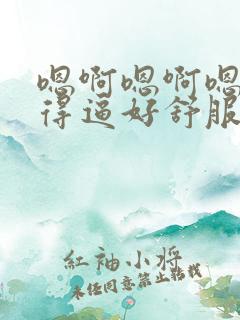 嗯啊嗯啊嗯
得逼好舒服
红袖小将
未经同意禁止转载